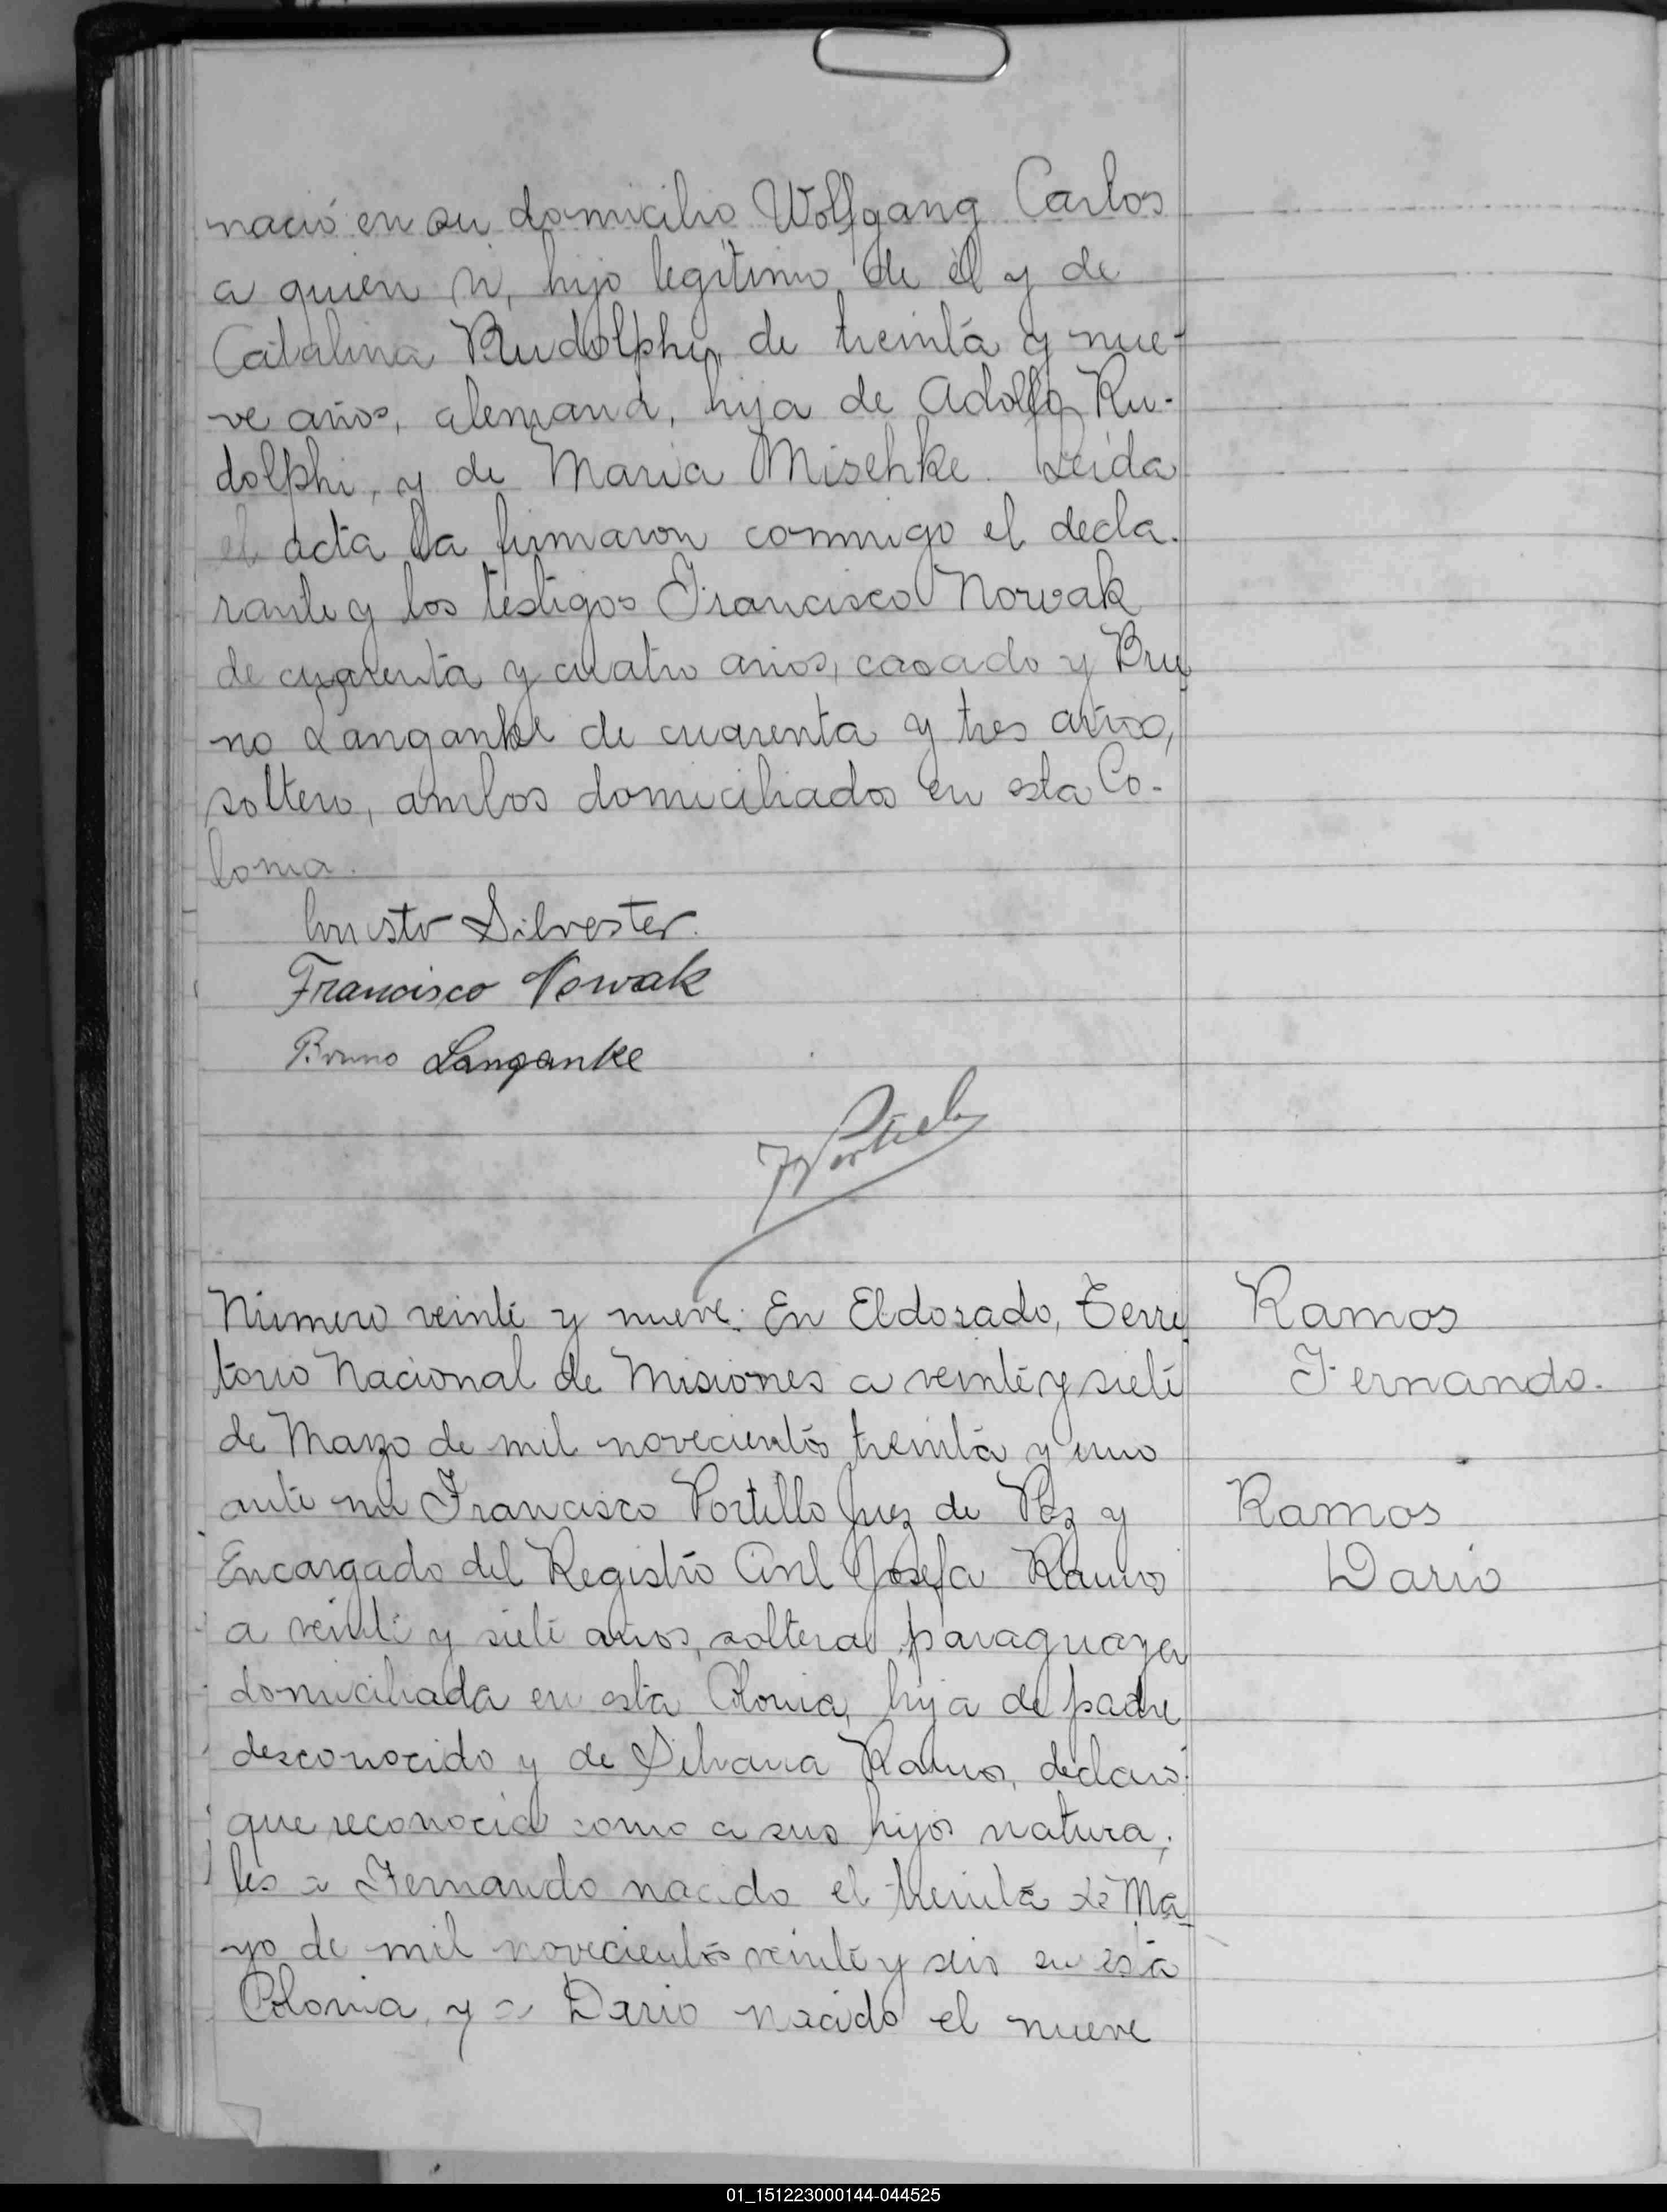 nació en su domicilio Wolfgang Carlos
a quien vi, hijo legítimo de él y de
Catalina Rudolphi, de treinta y nue-
ve años, alemana, hija de Adolfo Ru-
dolphi, y de Maria Mischke. Leida
el acta la firmaron conmigo el decla-
rante y los testigos Francisco Nowak
de cuarenta y cuatro años, casado y Bru
no Langanke de cuarenta y tres años,
soltero, ambos domiciliados en esta Co-
lonia.
Silvester.
Francisco Nowak
Bruno Langanke
Número veinte y nueve: En Eldorado, Terri
torio Nacional de Misiones a veinte y siete
de Marzo de mil novecientos treinta y uno
ante mi Francisco Portillo Juez de Paz y
Encargado del Registro Civil Josefa Ramos
a veinte y siete años, soltera paraguaya
domiciliada en esta Colonia, hija de padre
desconocido y de Silvana Ramos, declaró:
que reconocia como a sus hijos natura-
les a Fernando nacido el treinta de Ma
yo de mil novecientos veinte y seis en esta
Colonia, y a Dario nacido el nueve
Ramos
Fernando.
Ramos
Dario
01_151223000144-044525